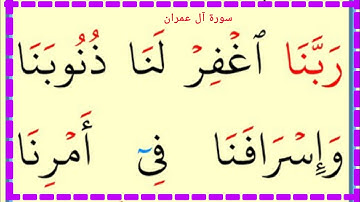 سورة آل عمران
رَبَّنَا ٱغْفِرْ لَنَا ذُنُوبَنَا
وَإِسْرَافَنَا فِىٓ أَمْرِنَا